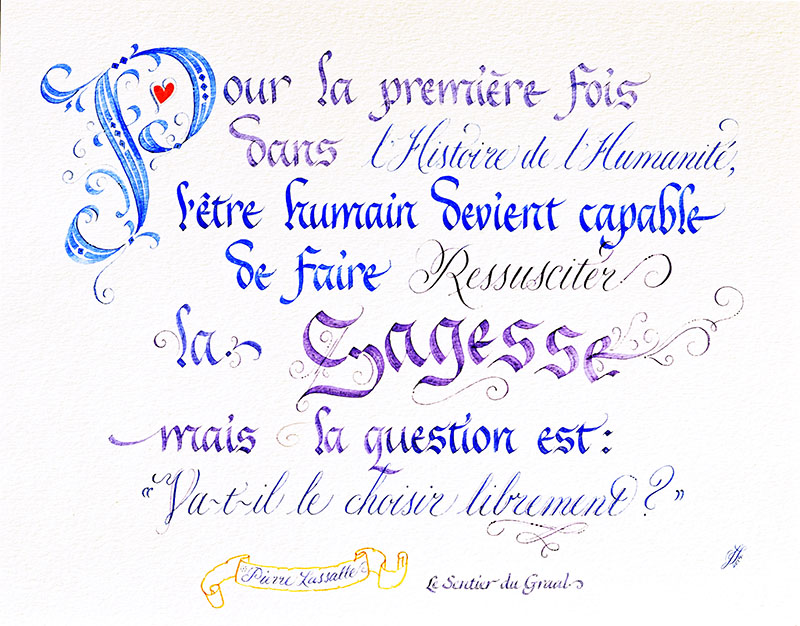 Pour la première fois
dans l'Histoire de l'Humanité,
l'être humain devient capable
de faire Ressusciter
la Sagesse
mais la question est :
"Va-t-il le choisir librement ?"
Pierre Lassalle
Le Sentier du Graal